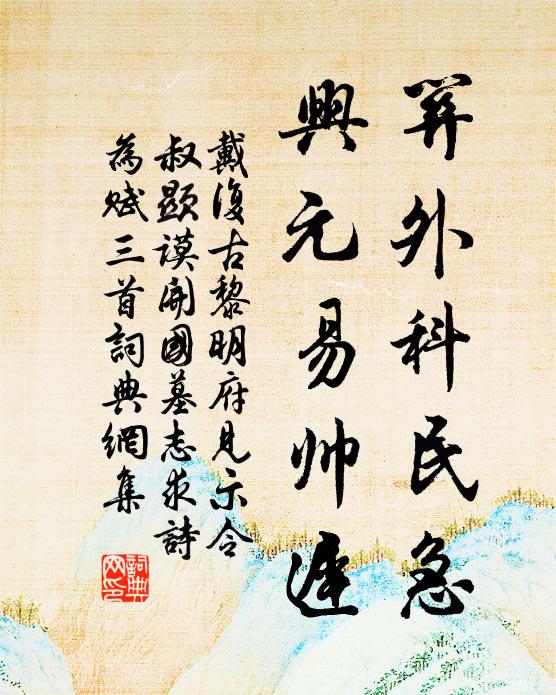 算外科民急
興元易帅遅
戴復古黎明府見示令
叔顯謨開國墓志求詩
為赋三首詞典網集
詞典
网印